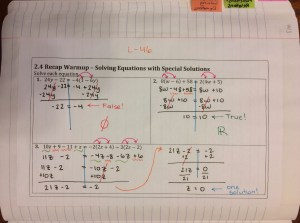 L-46
2.4 Recap Warmup – Solving Equations with Special Solutions
Solve each equation.
1. 24y – 22 = –4(1 – 6y)
24y - 22 = -4 + 24y
-24y -24y
-22 = -4 ← FALSE!
Ø
2. 8(w – 6) + 58 = 2(4w + 5)
8w -48+58 = 8w +10
8w +10 = 8w +10
-8w -8w
10 = 10 ← True!
ℝ
11z -2 = -4z -8 -6z +6
11z -2 = -10z -2
+10z +10z
21z -2 = -2
21z -2 = -2
+2 +2
21z = 0
21 21
z = 0 ← one solution!